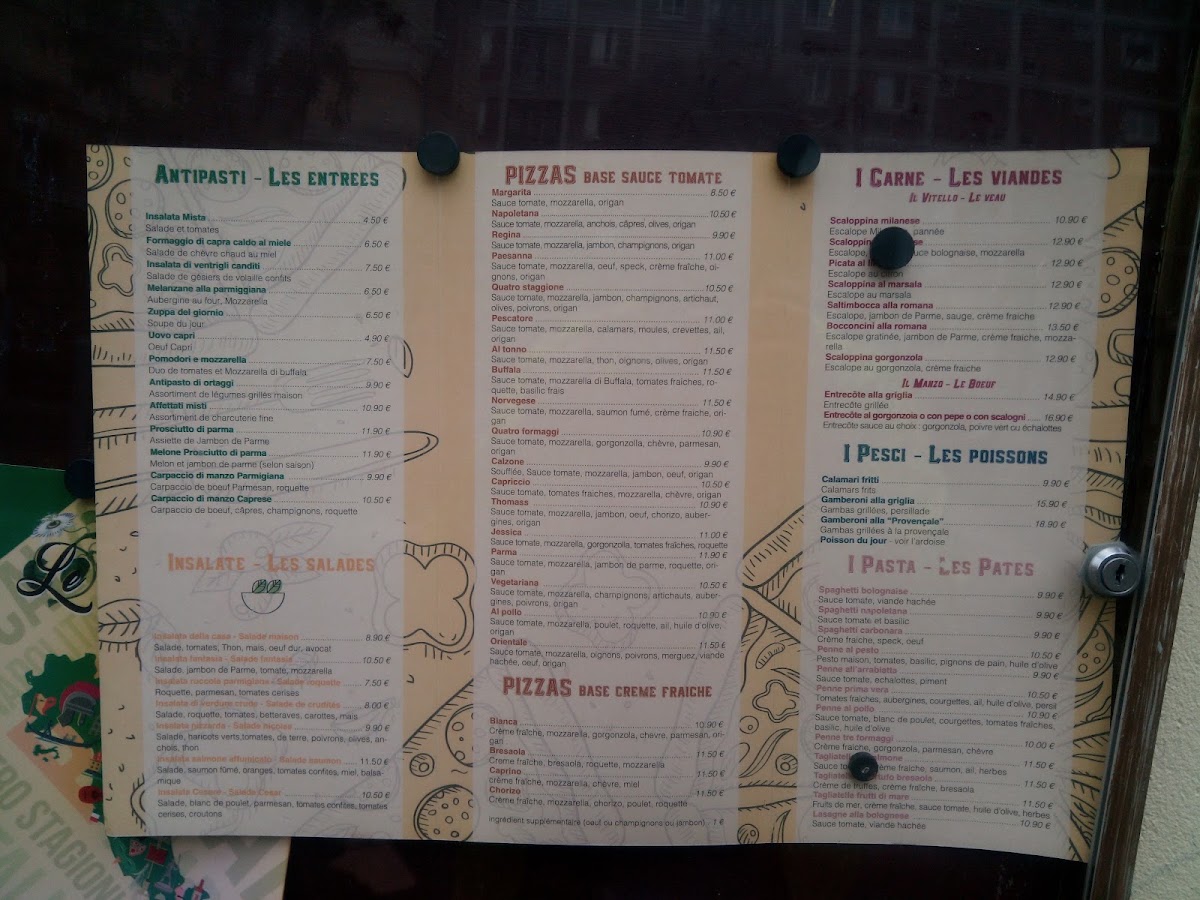 ANTIPASTI - LES ENTREES
Insalata Mista 4.50 €
Salade et tomates
Formaggio di capra caldo al miele 6.50 €
Salade de chèvre chaud au miel
Insalata di ventrigli canditi 7.50 €
Salade de gésiers de volaille confits
Melanzane alla parmiggiana 6.50 €
Aubergine au four, Mozzarella
Zuppa del giornio 6.50 €
Soupe du jour
Uovo capri 4.90 €
Oeuf Capri
Pomodori e mozzarella 7.50 €
Duo de tomates et Mozzarella di buffala
Antipasto di ortaggi 9.90 €
Assortiment de légumes grillés maison
Affettati misti 10.90 €
Assortiment de charcuterie fine
Prosciutto di parma 11.90 €
Assiette de Jambon de Parme
Melone Prosciutto di parma 11.90 €
Melon et jambon de parme (selon saison)
Carpaccio di manzo Parmigiana 9.90 €
Carpaccio de boeuf Parmesan, roquette
Carpaccio di manzo Caprese 10.50 €
Carpaccio de boeuf, câpres, champignons, roquette
INSALATE - LES SALADES
Insalata dalla casa - Salade maison 8.90 €
Salade, tomates, Thon, mais, oeuf dur, avocat
Insalata fantasia - Salade fantaisie 10.50 €
Salade, jambon de Parme, tomate, mozzarella
Insalata ruccola parmigiana - Salade roquette 7.50 €
Roquette, parmesan, tomates cerises
Insalata di verdure crude - Salade de crudités 8.00 €
Salade, roquette, tomates, betteraves, carottes, mais
Insalata nizzarda - Salade niçoise 9.90 €
Salade, haricots verts,tomates, de terre, poivrons, olives, an-
chois, thon
Insalata salmone affumicato - Salade saumon 11.50 €
Salade, saumon fumé, oranges, tomates confites, miel, balsa-
mique
Insalata Cesear - Salade Cesar 10.50 €
Salade, blanc de poulet, parmesan, tomates confites, tomates
cerises, croutons
PIZZAS BASE SAUCE TOMATE
Margarita 8.50 €
Sauce tomate, mozzarella, origan
Napoletana 10.50 €
Sauce tomate, mozzarella, anchois, câpres, olives, origan
Regina 9.90 €
Sauce tomate, mozzarella, jambon, champignons, origan
Paesanna 11.00 €
Sauce tomate, mozzarella, oeuf, speck, crème fraîche, oi-
gnons, origan
Quatro staggione 10.50 €
Sauce tomate, mozzarella, jambon, champignons, artichaut,
olives, poivrons, origan
Pescatore 11.00 €
Sauce tomate, mozzarella, calamars, moules, crevettes, ail,
origan
Al tonno 11.50 €
Sauce tomate, mozzarella, thon, oignons, olives, origan
Buffala 11.50 €
Sauce tomate, mozzarella di Buffala, tomates fraiches, ro-
quette, basilic frais
Norvegese 11.50 €
Sauce tomate, mozzarella, saumon fumé, crème fraiche, ori-
gan
Quatro formaggi 10.90 €
Sauce tomate, mozzarella, gorgonzolla, chèvre, parmesan,
origan
Calzone 9.90 €
Soufflée, Sauce tomate, mozzarella, jambon, oeuf, origan
Capriccio 10.50 €
Sauce tomate, tomates fraiches, mozzarella, chèvre, origan
Thomass 10.90 €
Sauce tomate, mozzarella, jambon, oeuf, chorizo, auber-
gines, origan
Jessica 11.00 €
Sauce tomate, mozzarella, gorgonzolla, tomates fraîches, roquette
Parma 11.90 €
Sauce tomate, mozzarella, jambon de parme, roquette, ori-
gan
Vegetariana 10.50 €
Sauce tomate, mozzarella, champignons, artichauts, auber-
gines, poivrons, origan
Al pollo 10.90 €
Sauce tomate, mozzarella, poulet, roquette, ail, huile d'olive,
origan
Orientale 11.50 €
Sauce tomate, mozzarella, oignons, poivrons, merguez, viande
hachée, oeuf, origan
PIZZAS BASE CREME FRAICHE
Bianca 10.90 €
Crème fraîche, mozzarella, gorgonzola, chèvre, parmesan, ori-
gan
Bresaola 11.50 €
Creme fraiche, bresaola, roquette, mozzarella
Caprino 11.50 €
crème fraîche, mozzarella, chèvre, miel
Chorizo 11.50 €
Crème fraîche, mozzarella, chorizo, poulet, roquette
Ingrédient supplémentaire (oeuf ou champignons ou jambon) - 1 €
I CARNE - LES VIANDES
IL VITELLO - LE VEAU
Scaloppina milanese 10.90 €
Escalope pannée
Scaloppina 12.90 €
Escalope, sauce bolognaise, mozzarella
Picata al 12.90 €
Escalope au citron
Scaloppina al marsala 12.90 €
Escalope au marsala
Saltimbocca alla romana 12.90 €
Escalope, jambon de Parme, sauge, crème fraiche
Bocconcini alla romana 13.50 €
Escalope gratinée, jambon de Parme, crème fraiche, mozza-
rella
Scaloppina gorgonzola 12.90 €
Escalope au gorgonzola, crème fraiche
IL MANZO - LE BOEUF
Entrecôte alla griglia 14.90 €
Entrecôte grillée
Entrecôte al gorgonzola o con pepe o con scalogni 16.90 €
Entrecôte sauce au choix : gorgonzola, poivre vert ou échalottes
I PESCI - LES POISSONS
Calamari fritti 9.90 €
Calamars frits
Gamberoni alla griglia 15.90 €
Gambas grillées, persillade
Gamberoni alla "Provençale" 18.90 €
Gambas grillées à la provençale
Poisson du jour - voir l'ardoise
I PASTA - LES PATES
Spaghetti bolognaise 9.90 €
Sauce tomate, viande hachée
Spaghetti napoletana 9.90 €
Sauce tomate et basilic
Spaghetti carbonara 9.90 €
Crème fraiche, speck, oeuf
Penne al pesto 10.50 €
Pesto maison, tomates, basilic, pignons de pain, huile d'olive
Penne all'arrabiatta 9.90 €
Sauce tomate, echalottes, piment
Penne prima vera 10.50 €
Tomates fraiches, aubergines, courgettes, ail, huile d'olive, persil
Penne al pollo 10.90 €
Sauce tomate, blanc de poulet, courgettes, tomates fraiches,
basilic, huile d'olive
Penne tre formaggi 10.00 €
Crème fraiche, gorgonzola, parmesan, chèvre
Tagliatelle 11.50 €
Sauce crème fraiche, saumon, ail, herbes
Tagliatelle bresaola 11.50 €
Crème de truffes, crème fraîche, bresaola
Tagliatelle frutti di mare 11.50 €
Fruits de mer, crème fraiche, sauce tomate, huile d'olive, herbes
Lasagne alla bolognese 10.90 €
Sauce tomate, viande hachée
Le
STAGION